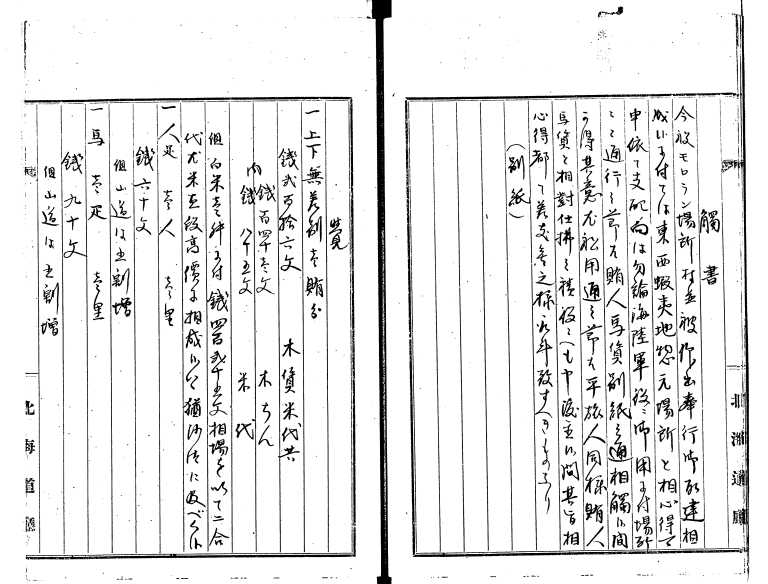 觸書
今般モロラン場所村並被仰出奉行御取建相
成候ニ付ては東西蝦夷地惣元場所と相心得可
申依て支配向は勿論海陸軍役々御用ニ付場所
々々通行之節は賄人馬賃別紙之通相觸候間
可得其意尤私用通之節は平旅人同様賄人
馬賃も相對仕拂之積役々へも申渡置候間其旨相
心得都て差支無之様取斗致すべきものなり
(別紙)
覺
一上下無差別壱賄分
錢弐百拾六文 木賃米代共
内 錢百四十壱文 木ちん
錢八十五文 米代
但白米壱升ニ付錢四百弐十五文相場を以て二合
代尤米直段高價ニ相成候ハヽ猶沙汰に及べく候
一人足 壱人 壱里
錢六十文
但山道は五割増
一馬 壱疋 壱里
錢九十文
但山道は五割増
北海道廳
北海道廳